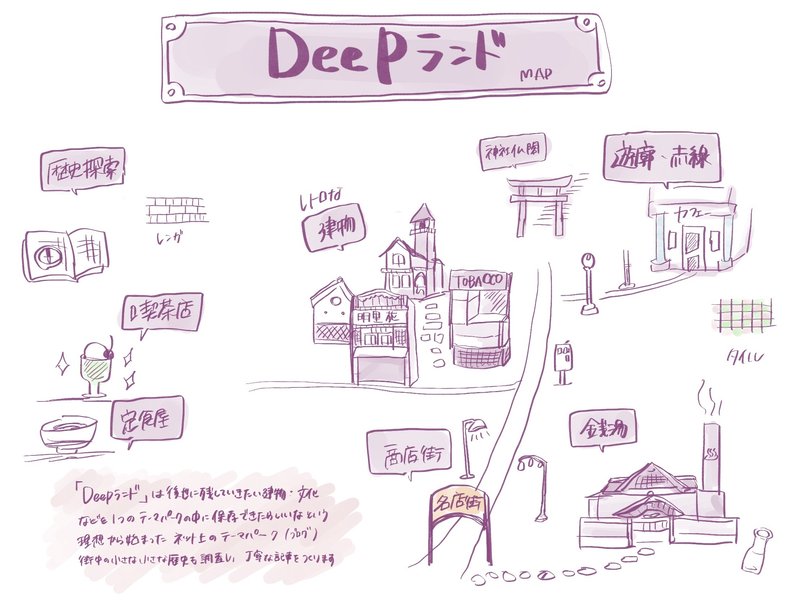 Deepランド MAP
歴史探索
レンガ
喫茶店
定食屋
レトロな
建物
TOBACCO
神社仏閣
遊廓・赤線
カフェー
タイル
商店街
名店街
銭湯
「Deepランド」は後世に残していきたい建物・文化
などを1つのテーマパークの中に保存できたらいいなという
理想から始まったネット上のテーマパーク(ブログ)
街中の小さな小さな歴史も調査し、丁寧な記事をつくります